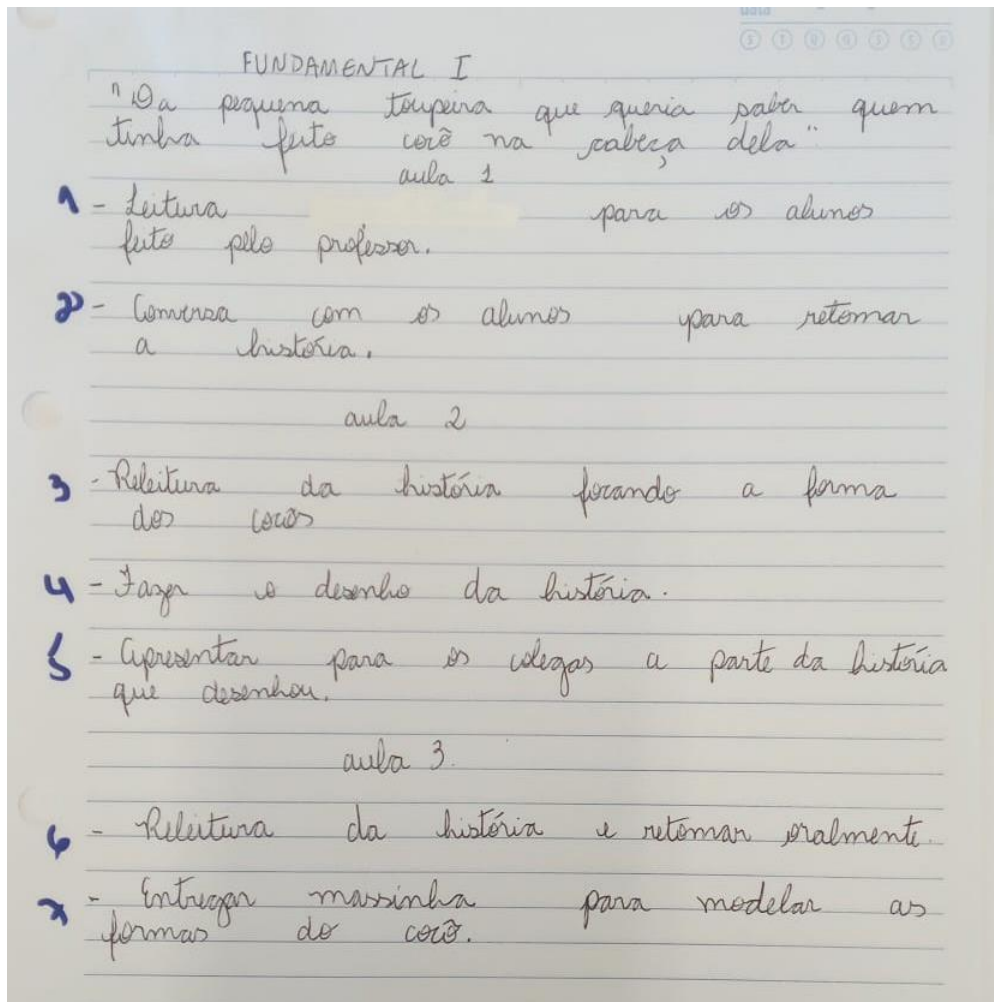 data
S T Q Q S S D
FUNDAMENTAL I
"Da pequena toupeira que queria saber quem
tinha feito cocô na cabeça dela"
aula 1
1 - Leitura para os alunos
feito pelo professor.
2 - Conversa com os alunos para retomar
a história.
aula 2
3 - Releitura da história focando a forma
dos cocôs
4 - Fazer o desenho da história.
5 - Apresentar para os colegas a parte da história
que desenhou.
aula 3.
6 - Releitura da história e retomar oralmente.
7 - Entregar massinha para modelar as
formas do cocô.